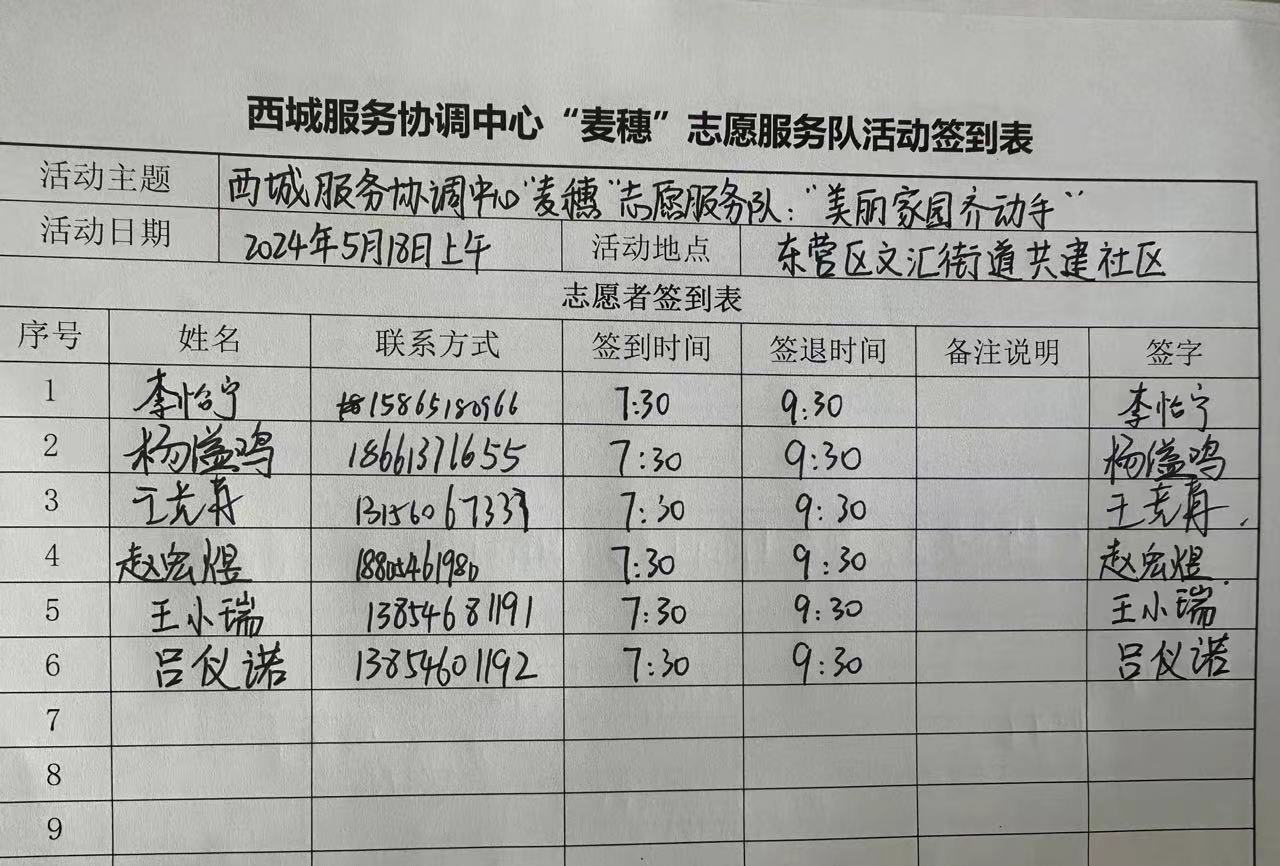 西城服务协调中心“麦穗”志愿服务队活动签到表
活动主题 西城服务协调中心“麦穗”志愿服务队：“美丽家园齐动手”
活动日期 2024年5月18日上午 活动地点 东营区文汇街道共建社区
志愿者签到表
序号 姓名 联系方式 签到时间 签退时间 备注说明 签字
1 李怡宁 15865180966 7:30 9:30 李怡宁
2 杨溢鸣 18661371655 7:30 9:30 杨溢鸣
3 7:30 9:30
4 赵宏煜 18805461980 7:30 9:30 赵宏煜
5 王小瑞 13854681191 7:30 9:30 王小瑞
6 吕仪诺 13854601192 7:30 9:30 吕仪诺
7
8
9